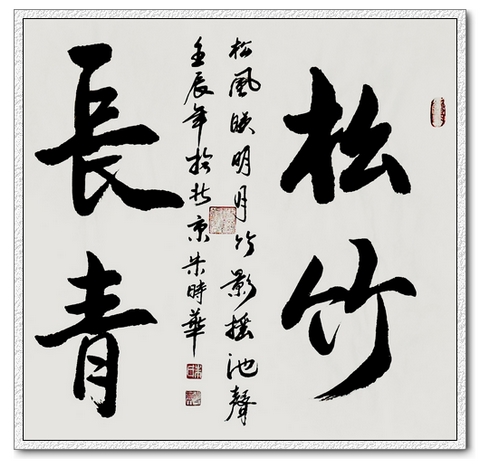 松竹
松風映明月竹影搖池聲
壬辰年於北京朱時華
長青